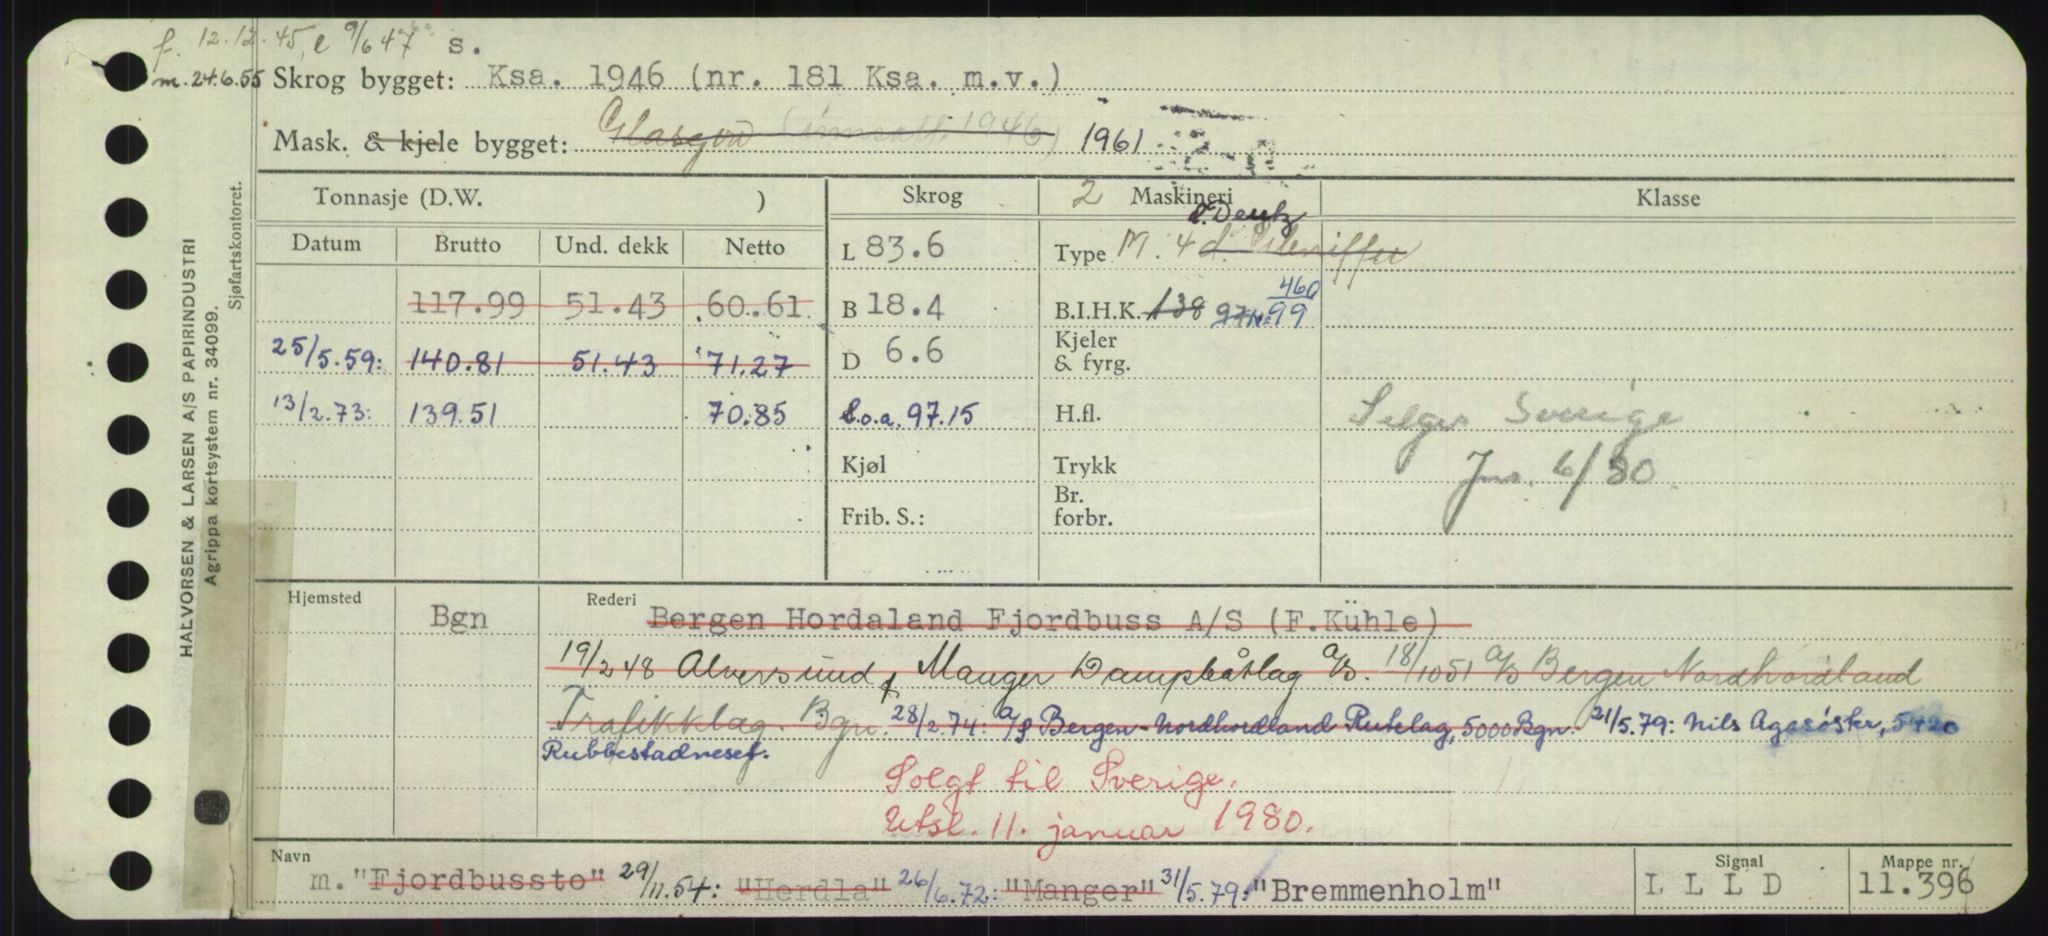 f. 12.12.45, e 9/6 47 s.
m. 24.6.55 Skrog bygget: Ksa. 1946 (nr. 181 Ksa. m.v.)
Mask. & kjele bygget: Glasgow 1946) 1961
HALVORSEN & LARSEN A/S PAPIRINDUSTRI
Agrippa kortsystem nr. 34099.
Sjøfartskontoret.
Tonnasje (D.W. ) Skrog 2 Maskineri Klasse
d. Deutz
Datum Brutto Und. dekk Netto L 83.6 Type M. 4 d.
460
117.99 51.43 60.61 B 18.4 B.I.H.K. 138 99
25/5.59: 140.81 51.43 71.27 D 6.6 Kjeler & fyrg.
13/2.73: 139.51 70.85 L.o.a. 97.15 H.fl. Selges Sverige
Kjøl Trykk Jnr. 6/80.
Frib. S.: Br. forbr.
Hjemsted Bgn Rederi Bergen Hordaland Fjordbuss A/S (F.Kühle)
19/2 48 Alversund & Manger Dampbåtlag a/s. 18/10 51 a/s Bergen Nordhordland
Trafikklag. Bgn. 28/2.74: a/s Bergen-Nordhordland Rutelag, 5000 Bgn. 21/5.79: Nils Agasøster, 5420
Rubbestadneset.
Solgt til Sverige.
Utsl. 11. januar 1980.
Navn Signal Mappe nr.
m. "Fjordbussto" 29/11.54: "Herdla" 26/6.72: "Manger" 31/5.79: "Bremmenholm" L L L D 11.396